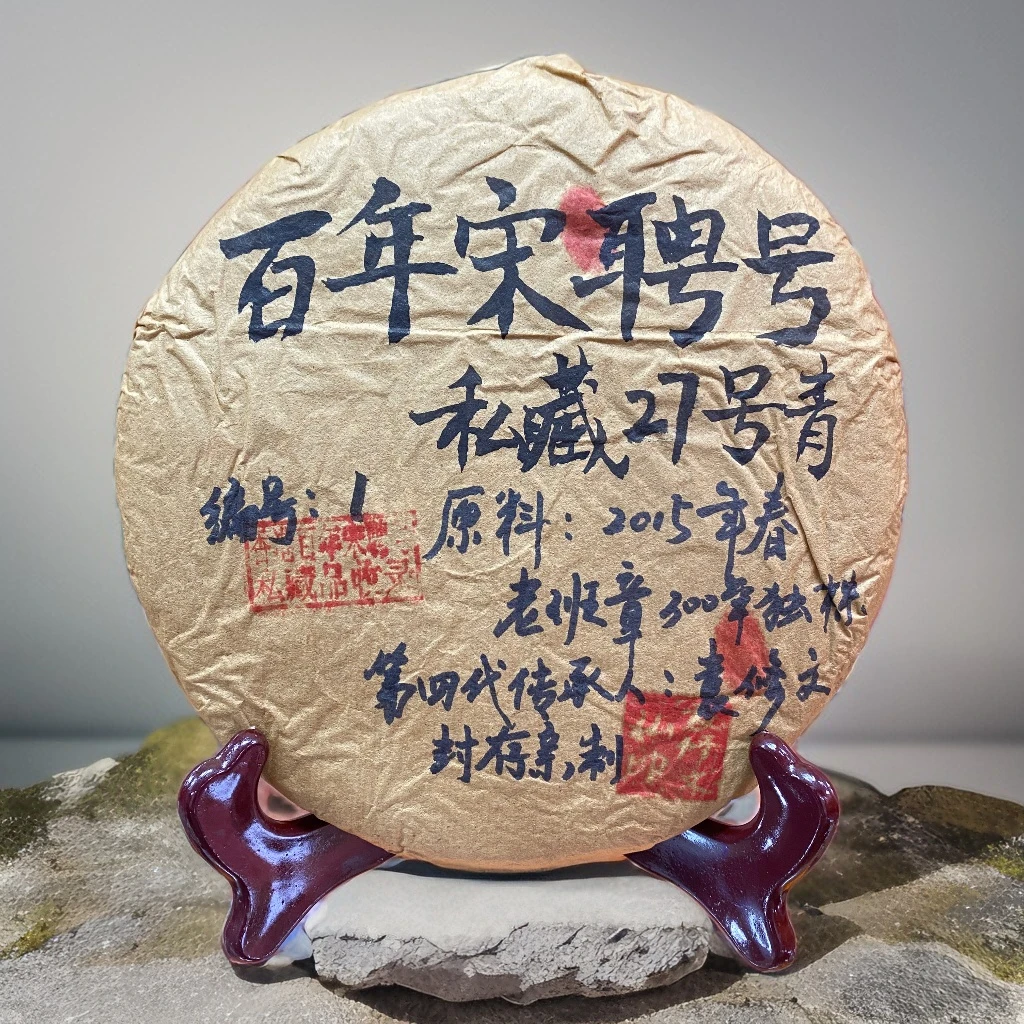 百年宋聘号
私藏27号青
编号:1
原料:2015年春
老班章300年独株
第四代传承人:袁修文
封存亲制
私藏品